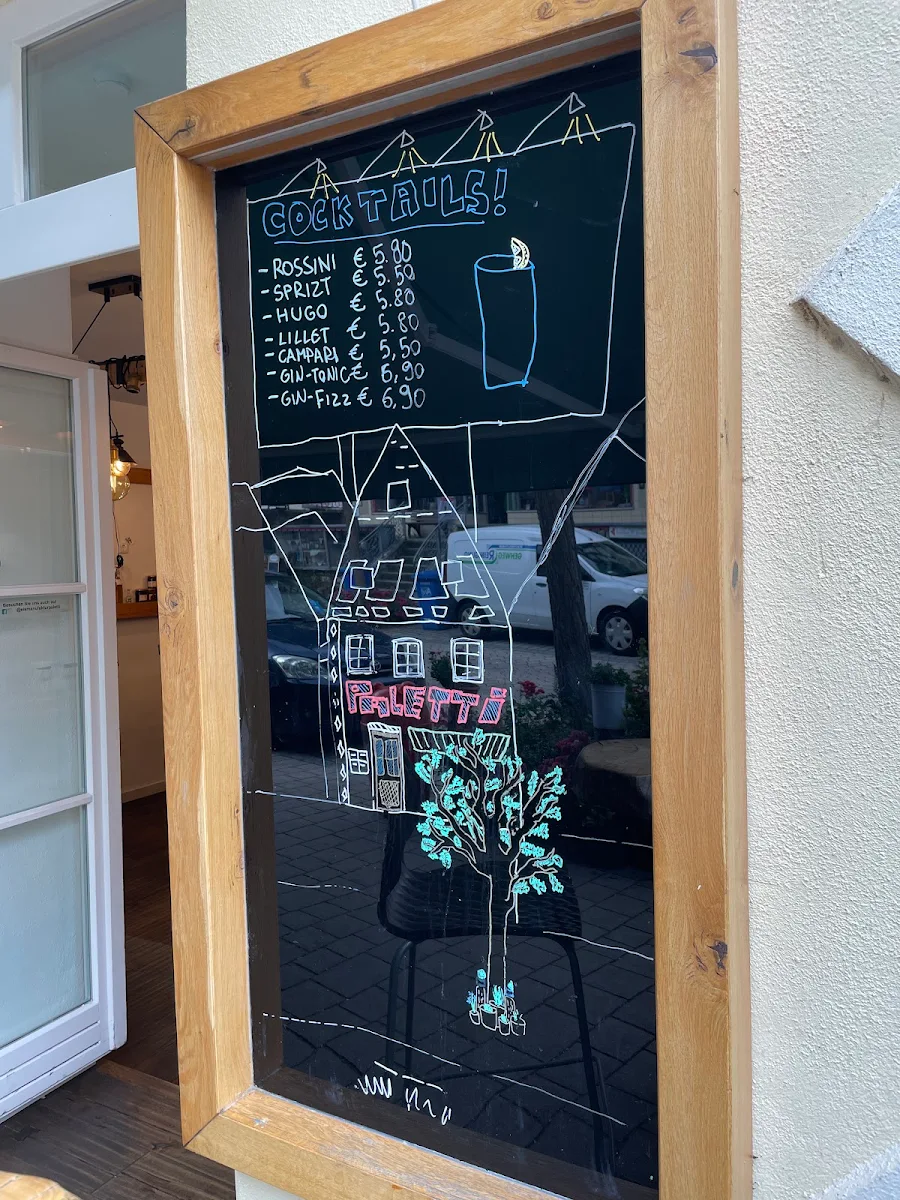 COCKTAILS!
- ROSSINI € 5.80
- SPRIZT € 5.50
- HUGO € 5.80
- LILLET € 5.80
- CAMPARI € 5,50
- GIN-TONIC € 6,90
- GIN-FIZZ € 6,90
PAULETTI